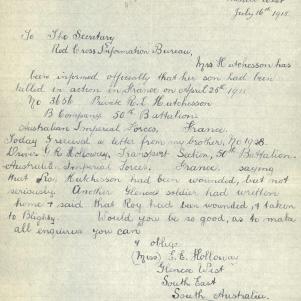 July 16th 1918.
To The Secretary
Red Cross Information Bureau,
Mrs Hutchesson has
been informed officially that her son had been
killed in action in France on April 25th 1918
No 3656 Private R.L Hutchesson
B Company 50th Battalion
Australian Imperial Forces, France.
Today I received a letter from my brother, No 1928.
Driver C.R. Holloway, Transport Section, 50th Battalion.
Australian Imperial Forces, France, saying
that Roy Hutchesson had been wounded, but not
seriously. Another Glencoe soldier had written
home & said that Roy had been wounded & taken
to Blighty. Would you be so good, as to make
all enquiries you can
& oblige
(Miss) E.E. Holloway
Glencoe West
South East
South Australia